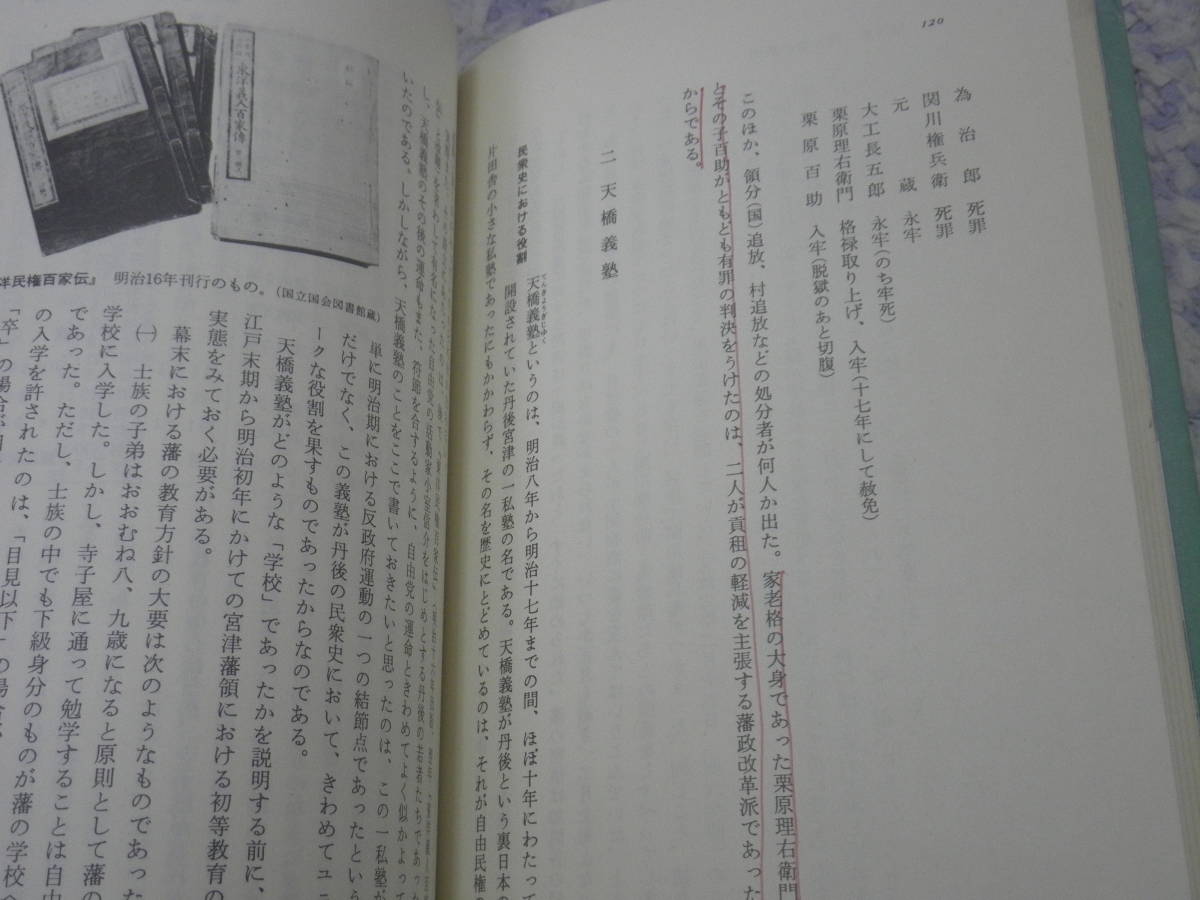 120
為治郎　死罪
関川権兵衛　死罪
元蔵　永牢
大工長五郎　永牢(のち牢死)
栗原理右衛門　格禄取り上げ、入牢(十七年にして赦免)
栗原百助　入牢(脱獄のあと切腹)
このほか、領分(国)追放、村追放などの処分者が何人か出た。家老格の大身であった栗原理右衛門
とその子百助がともども有罪の判決をうけたのは、二人が貢租の軽減を主張する藩政改革派であった
からである。
二　天橋義塾
民衆史における役割
天橋義塾というのは、明治八年から明治十七年までの間、ほぼ十年にわたって
開設されていた丹後宮津の一私塾の名である。天橋義塾が丹後という裏日本の
片田舎の小さな私塾であったにもかかわらず、その名を歴史にとどめているのは、それが自由民権の
東洋義人百家傳
洋民権百家伝』　明治16年刊行のもの。(国立国会図書館蔵)
をはじめとする丹後の若者たちであっ
し、天橋義塾のその後の運命もまた、符節を合するように、自由党の運命ときわめてよく似かよって
いたのである。しかしながら、天橋義塾のことをここで書いておきたいと思ったのは、この一私塾が
単に明治期における反政府運動の一つの結節点であったという
だけでなく、この義塾が丹後の民衆史において、きわめてユニ
ークな役割を果すものであったからなのである。
天橋義塾がどのような「学校」であったかを説明する前に、
江戸末期から明治初年にかけての宮津藩領における初等教育の
実態をみておく必要がある。
幕末における藩の教育方針の大要は次のようなものであった
㈠　士族の子弟はおおむね八、九歳になると原則として藩の
学校に入学した。しかし、寺子屋に通って勉学することは自由
であった。ただし、士族の中でも下級身分のものが藩の学校へ
の入学を許されたのは、「目見以下」の場合
「卒」の場合